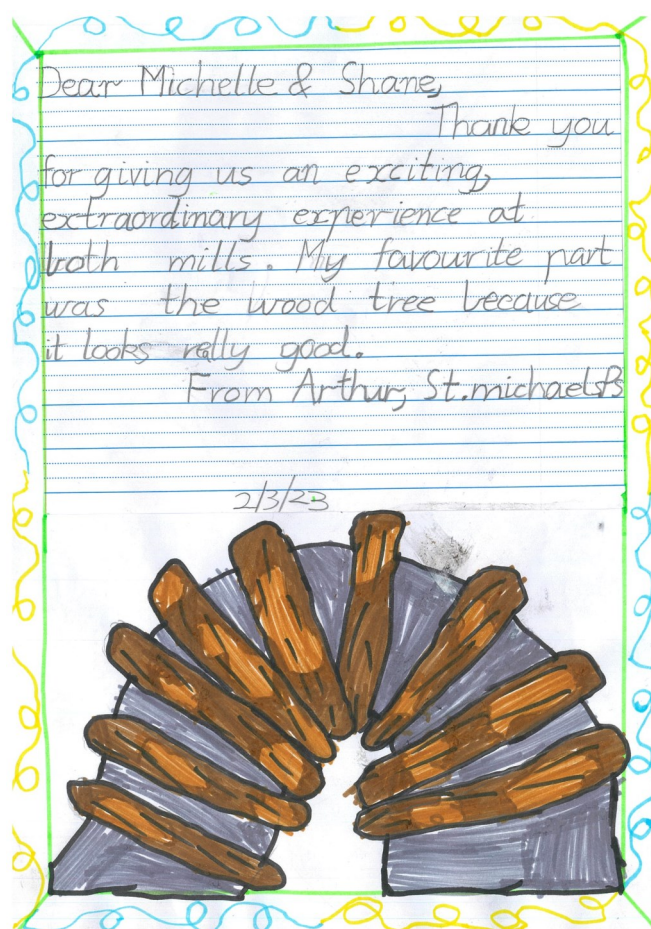 Dear Michelle & Shane,
Thank you
for giving us an exciting,
extraordinary experience at
both mills. My favourite part
was the wood tree because
it looks really good.
From Arthur, St.michaelsPs
2/3/23